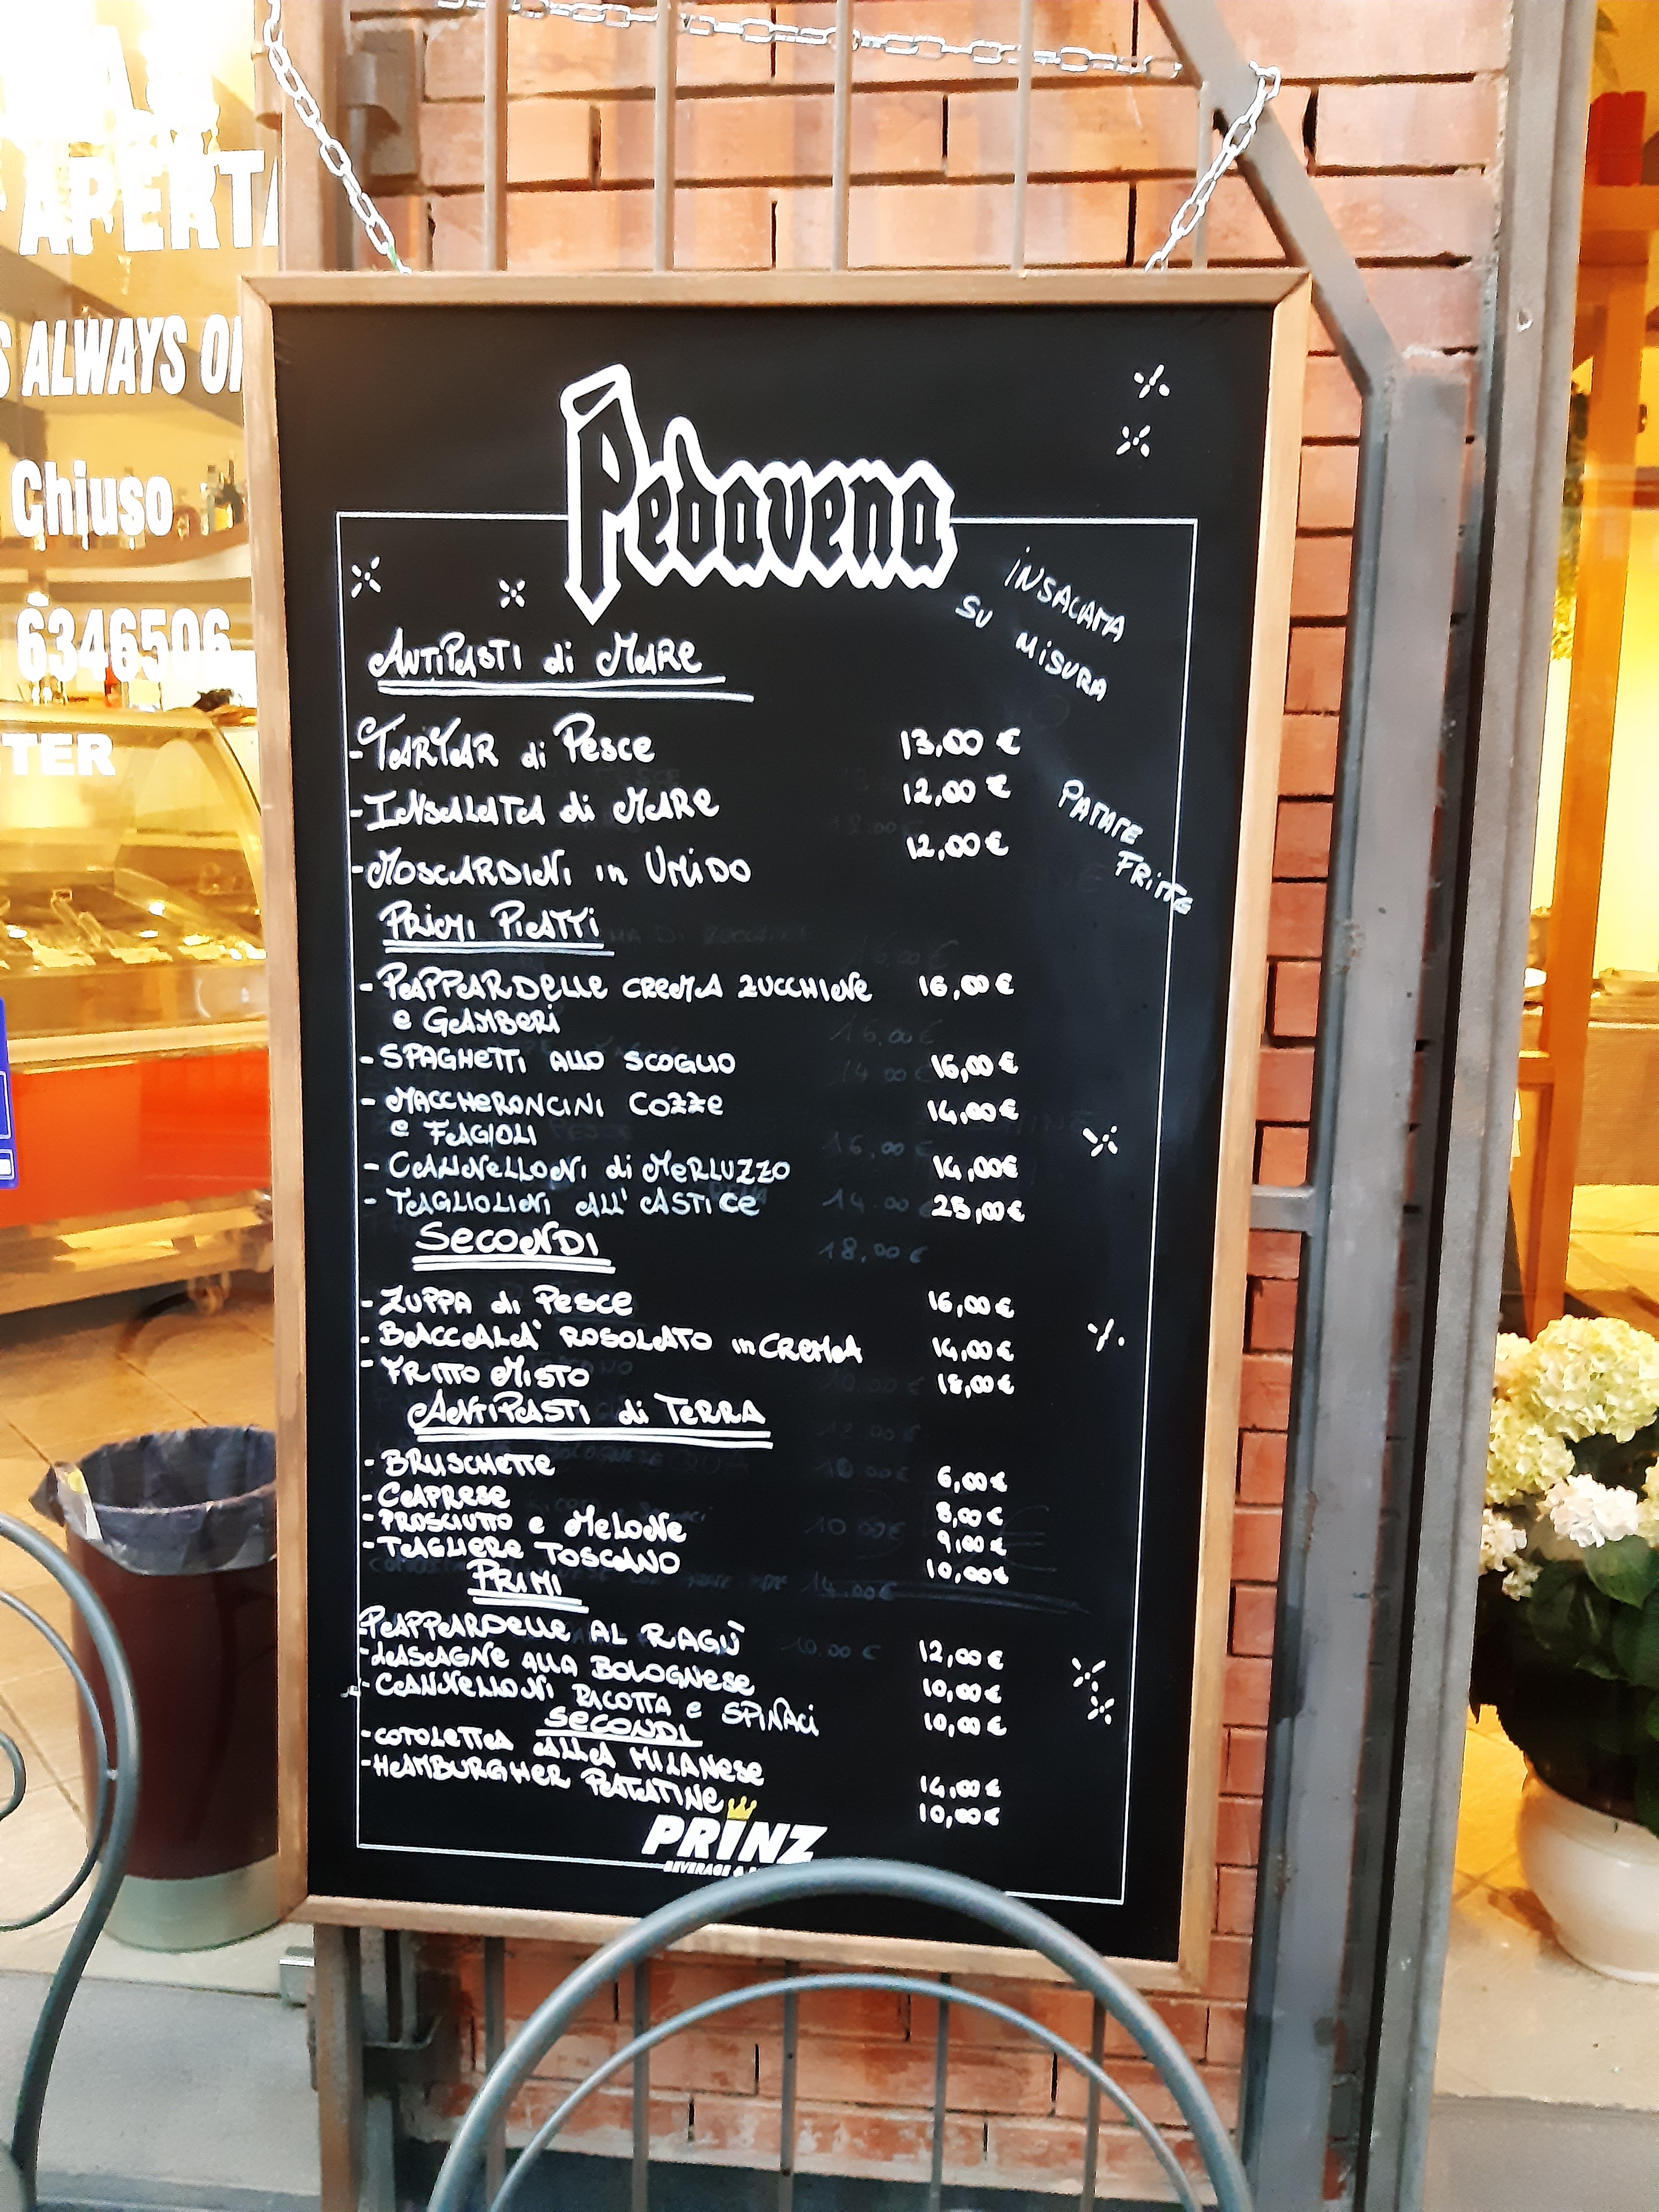 APERTA
ALWAYS
Chiuso
6346506
TER
Pedavena
INSALATA
SU MISURA
ANTIPASTI di MARE
-TARTAR di Pesce 13,00 €
-INSALATA di MARE 12,00 €
-MOSCARDINI in UMIDO 12,00 €
PATATE
FRITTE
PRIMI PIATTI
- PAPPARDELLE CREMA ZUCCHINE 16,00 €
e GAMBERI
- SPAGHETTI ALLO SCOGLIO 16,00 €
- MACCHERONCINI COZZE 14,00 €
e FAGIOLI
- CANNELLONI di MERLUZZO 14,00 €
- TAGLIOLINI ALL'ASTICE 25,00 €
SECONDI
- ZUPPA di PESCE 16,00 €
- BACCALA' ROSOLATO in CREMA 14,00 €
- FRITTO MISTO 18,00 €
ANTIPASTI di TERRA
- BRUSCHETTE 6,00 €
- CAPRESE 8,00 €
- PROSCIUTTO e MELONE 9,00 €
- TAGLIERE TOSCANO 10,00 €
PRIMI
-PAPPARDELLE AL RAGÙ 12,00 €
-LASAGNE ALLA BOLOGNESE 10,00 €
- CANNELLONI RICOTTA e SPINACI 10,00 €
SECONDI
-COTOLETTA ALLA MILANESE 14,00 €
-HAMBURGHER PATATINE 10,00 €
PRINZ
BEVERAGE &